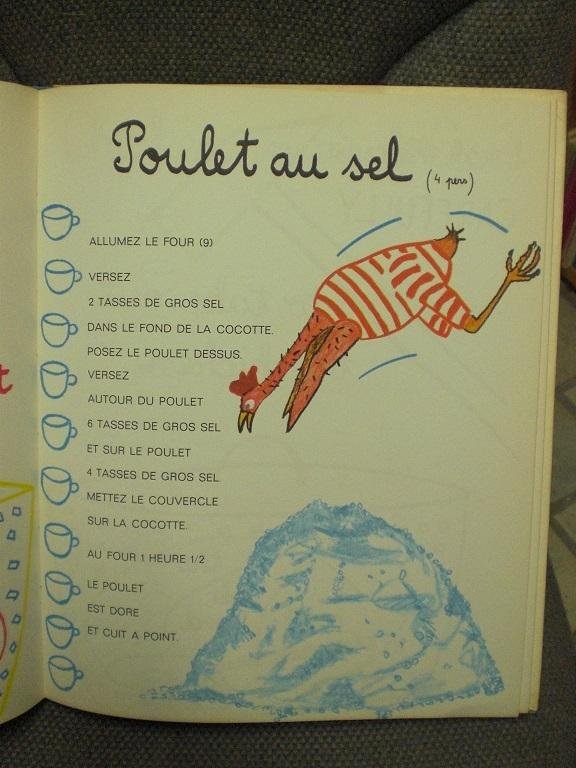 Poulet au sel (4 pers)
ALLUMEZ LE FOUR (9)
VERSEZ
2 TASSES DE GROS SEL
DANS LE FOND DE LA COCOTTE.
POSEZ LE POULET DESSUS.
VERSEZ
AUTOUR DU POULET
6 TASSES DE GROS SEL
ET SUR LE POULET
4 TASSES DE GROS SEL.
METTEZ LE COUVERCLE
SUR LA COCOTTE.
AU FOUR 1 HEURE 1/2
LE POULET
EST DORE
ET CUIT A POINT.
t